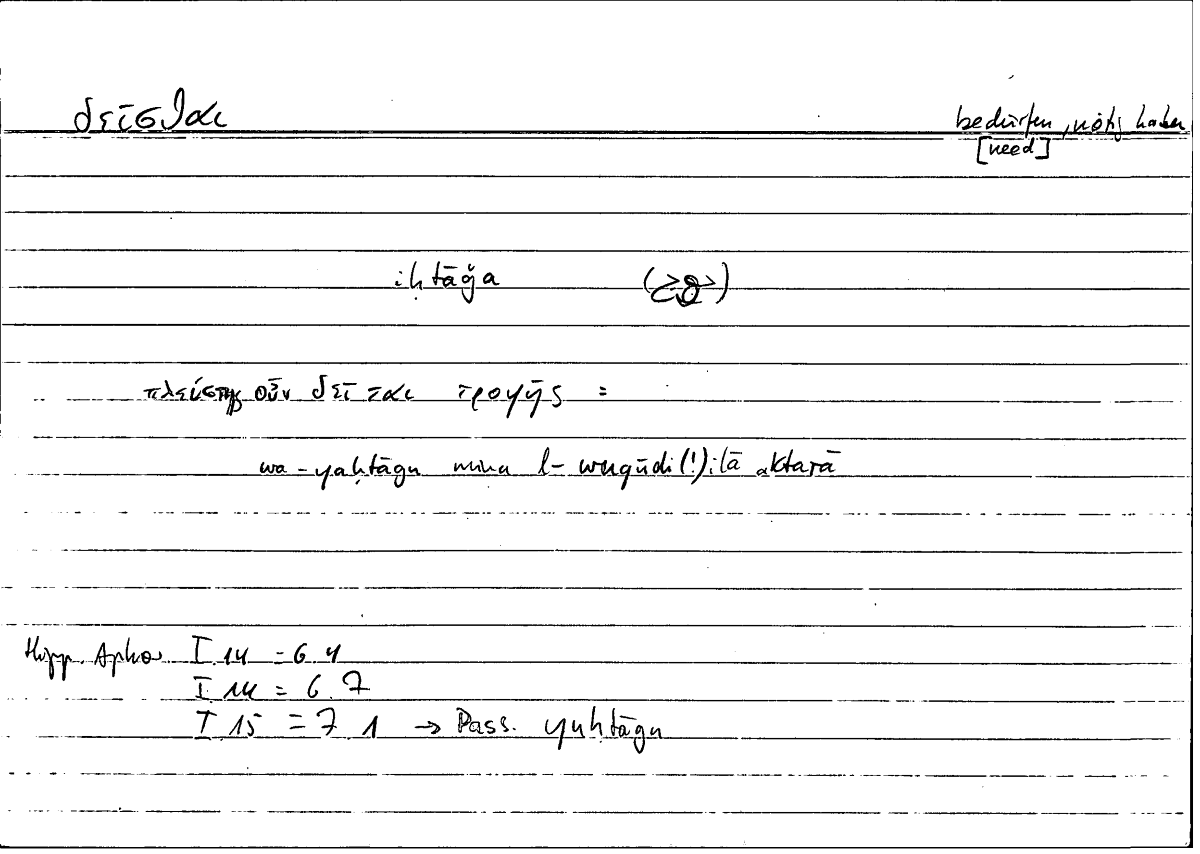 δεῖσθαι
bedürfen, nötig haben
[need]
iḥtāǧa
πλείστης οὖν δεῖται τροφῆς =
wa-yaḥtāǧu mina l-wuqūdi(!) ilā
Hipp. Aphor I 14 = 6 4
I 14 = 6 7
I 15 = 7 1 → Pass. yuḥtāǧu